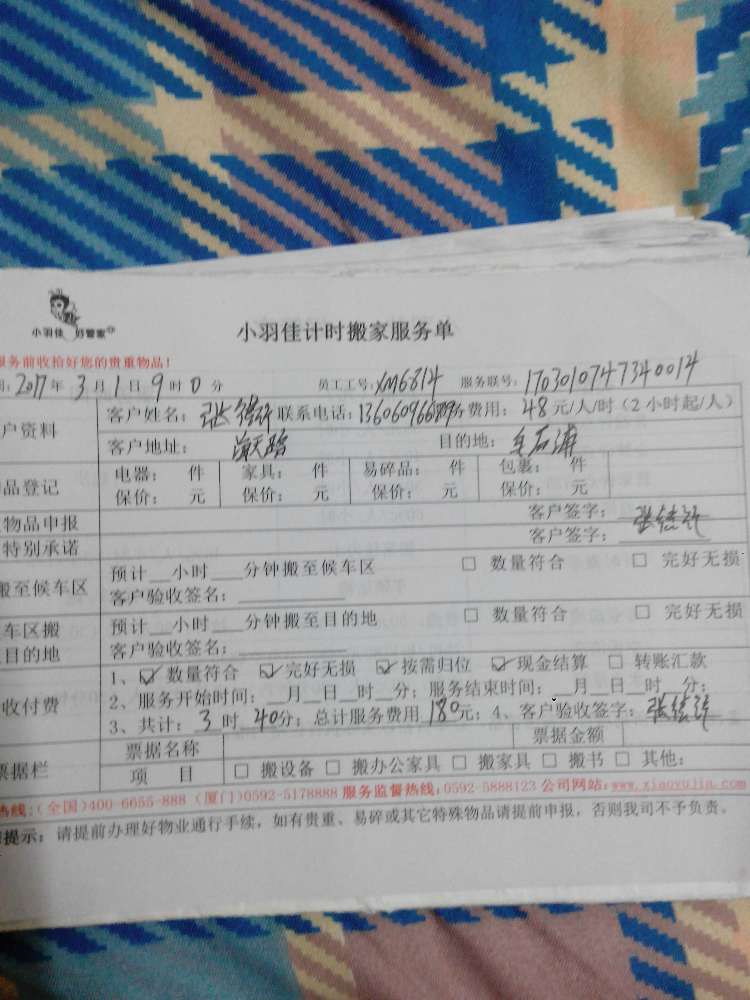 小羽佳 好管家
小羽佳计时搬家服务单
服务前收拾好您的贵重物品!
: 2017年 3月1日9时0分 员工工号: XM6814 服务联号: 1703010747340014
户资料 客户姓名: 张 联系电话: 费用: 48元/人/时(2小时起/人)
客户地址: 目的地:
品登记 电器: 件 家具: 件 易碎品: 件 包裹: 件
保价: 元 保价: 元 保价: 元 保价: 元
物品申报 客户签字: 张
特别承诺 客户签字:
搬至候车区 预计__小时___分钟搬至候车区 □ 数量符合 □ 完好无损
客户验收签名:
车区搬 预计__小时___分钟搬至目的地 □ 数量符合 □ 完好无损
目的地 客户验收签名:
1、☑ 数量符合 ☑ 完好无损 ☑ 按需归位 ☑ 现金结算 □ 转账汇款
收付费 2、服务开始时间: __月__日__时__分; 服务结束时间: __月__日__时__分;
3、共计: 3时 40分; 总计服务费用 180元; 4、客户验收签字: 张
票据栏 票据名称 票据金额
项 目 □ 搬设备 □ 搬办公家具 □ 搬家具 □ 搬书 □ 其他:
热线:(全国)400-6655-888 (厦门)0592-5178888 服务监督热线:0592-5888123 公司网站:www.xiaoyujia.com
提示: 请提前办理好物业通行手续, 如有贵重、易碎或其它特殊物品请提前申报, 否则我司不予负责。